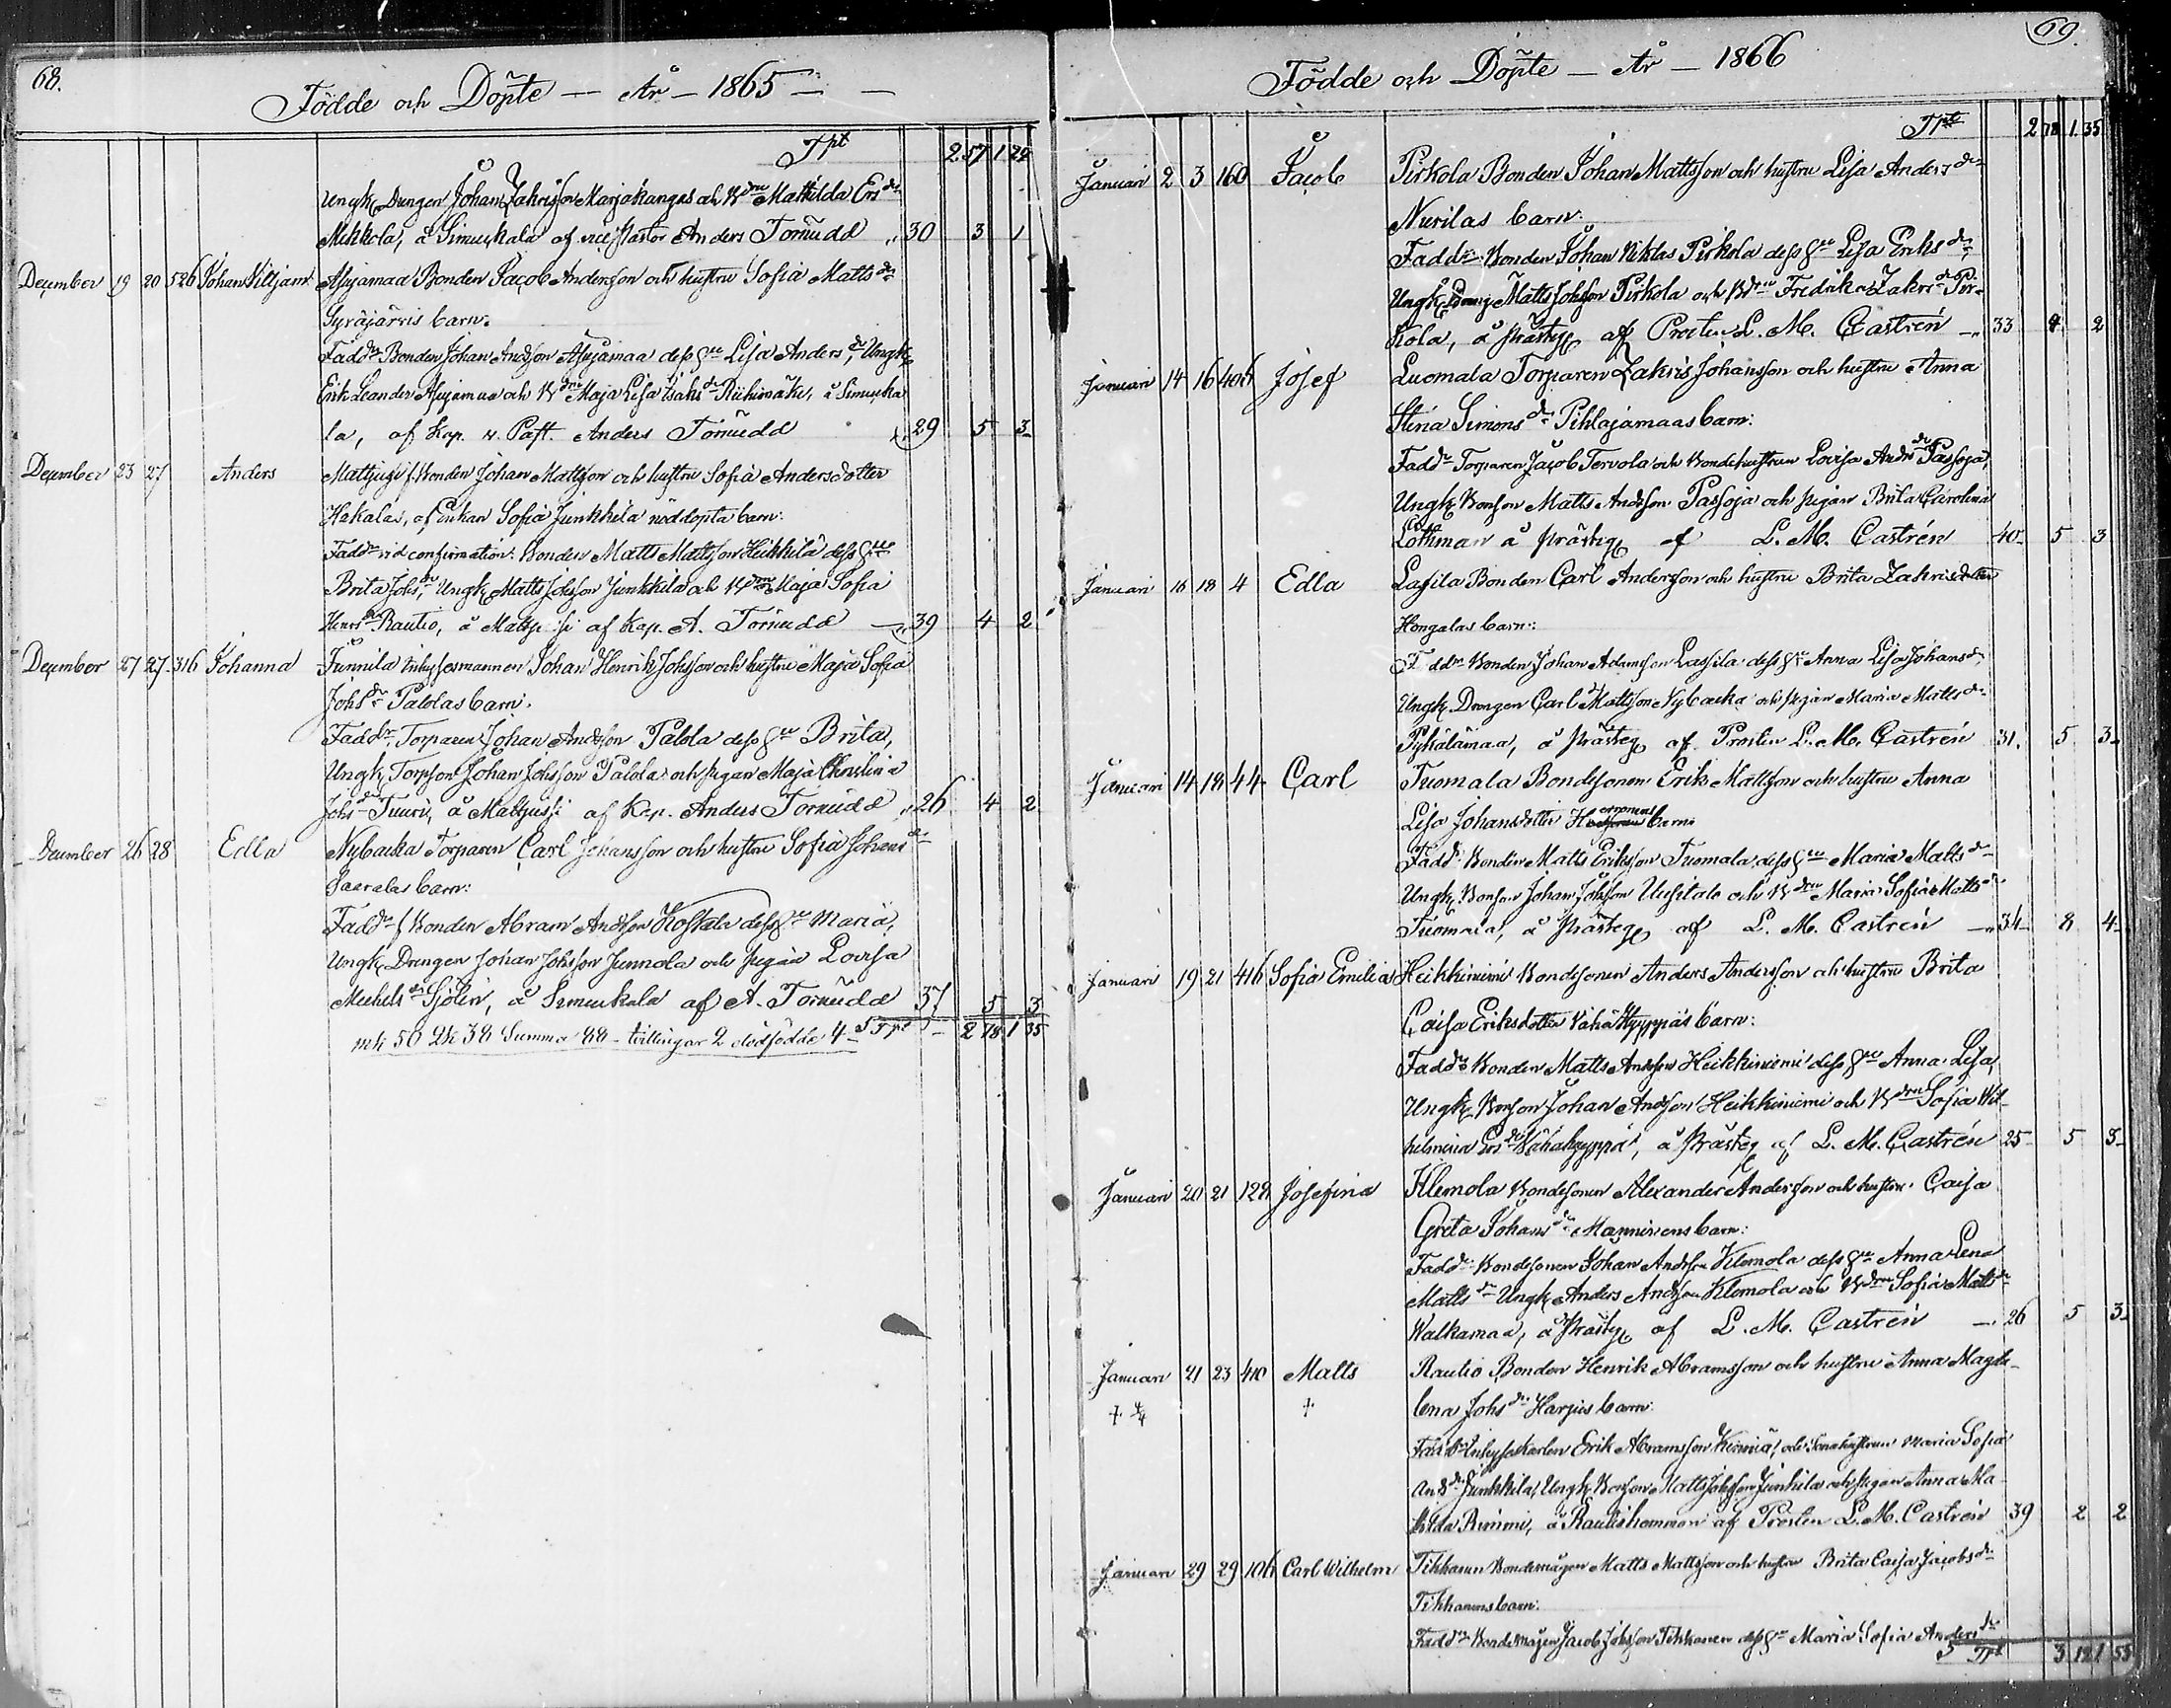 68.
Födde och Döpte — År — 1865 —
Tpt 2 57 1 22
Ungk. Drengen Johan Zakrisson Marjakangas och Bdrn Mathilda Ersdr
Mikkola, å Simuskala af vice Pastor Anders Törnudd 30 3 1
December 19 20 526 Johan Viljam Alajamaa Bonden Jacob Andersson och hustru Sofia Mattsdr
Syräjärvis barn.
Faddr Bonden Johan Andsson dess hu Lisa Andersdr, Ungk
Erik Leander och Bdrn Maja Lisa Isaksdr Riihimäki, å Simuska
la, af Kap. v. Past. Anders Törnudd 29 5 3
December 23 27 Anders Mattjusi f. Bonden Johan Mattsson och hustru Sofia Andersdotter
Hakalas, af Enkan Sofia Junkkila nöddöpta barn:
Faddr vid confirmation: Bonden Matts Mattsson Heikkilä dess hu
Brita Johsdr, Ungk. Matts Johsson Junkkila och Bdrn Maja Sofia
Henrsdr Rautio, å Mattjusi af Kap. A. Törnudd 39 4 2
December 27 27 316 Johanna Junnila Inhysesmannen Johan Henrik Johsson och hustru Maja Sofia
Johsdr Palolas barn.
Faddr, Torparen Johan Andsson Palola dess hu Brita,
Ungk. Torpson Johan Johsson Palola och pigan Maja Christina
Johsdr Tuuri, å Mattjussi af Kap. Anders Törnudd 26 4 2
December 26 28 Edla Nybacka Torparen Carl Johansson och hustru Sofia Johansdr
Saaralas barn:
Faddr f Bonden Abram Andsson Koskela dess hu Maria,
Ungk. Drengen Johan Johsson Junnola och pigan Lovisa
Michelsdr Sjölin, å Simuskala af A. Törnudd 37 5 3
mk 50 Qk 38 Summa 88 - tvillingar 2 dödfödde 4 - Tpt 2 78 1 35
69.
Födde och Döpte — År — 1866
Tpt 2 78 1 35
Januari 2 3 160 Jacob Pirkola Bonden Johan Mattsson och hustru Lisa Andersdr
Nurilas barn:
Faddr Bonden Johan Niklas Pirkola dess hu Lisa Eriksdr,
Ungk. Dreng Matts Johsson Pirkola och Bdrn Fredrika Zakrisdr Pir-
kola, å Prästeg af Prosten L. M. Castrén 33 4 2
Januari 14 16 406 Josef Luomala Torparen Zakris Johansson och hustru Anna
Stina Simonsdr Pihlajamaas barn:
Faddr Torparen Jacob Tervola och Bondehustrun Lovisa Andrsdr Passoja,
Ungk. Bonson Matts Andsson Passoja och pigan Brita Carolina
Lothman å Prästeg af L. M. Castrén 40 5 3
Januari 16 18 4 Edla Lassila Bonden Carl Andersson och hustru Brita Zakrisdotter
Hongalas barn:
Faddr Bonden Johan Adamsson Lassila dess hu Anna Lisa Johansdr,
Ungk. Drengen Carl Mattsson Nybacka och pigan Maria Mattsdr
Pyhälämaa, å Prästeg af Prosten L. M. Castrén 31. 5 3
Januari 14 18 44 Carl Tuomala Bondesonen Erik Mattsson och hustru Anna
Lisa Johansdotter barn:
Faddr Bonden Matts Eriksson Tuomala dess hu Maria Mattsdr
Ungk. Bonson Johan Johsson Uusitalo och Bdrn Maria Sofia Mattsdr
Tuomala, å Prästeg af L. M. Castrén 34 8 4
Januari 19 21 416 Sofia Emilia Heikkiniemi Bondesonen Anders Andersson och hustru Brita
Caisa Eriksdotter Vähä Hyyppäs barn:
Faddr Bonden Matts Andsson Heikkiniemi dess hu Anna Lisa,
Ungk. Bonson Johan Andsson Heikkiniemi och Bdrn Sofia Wil-
helmina Ersdr Vähähyyppä, å Prästeg af L. M. Castrén 25 5 3
Januari 20 21 128 Josefina Klemola Bondesonen Alexander Andersson och hustru Caisa
Greta Johansdr Manninens barn:
Faddr Bondesonen Johan Andsson Klemola dess hu Anna Lena
Mattsdr Ungk. Anders Andsson Klemola och Bdrn Sofia Mattsdr
Walkamaa, å Prästeg af L. M. Castrén 26 5 3
Januari 21 23 410 Matts Rautio Bonden Henrik Abramsson och hustru Anna Magda-
† 4/4 † lena Johsdr Harjus barn:
Faddr Inhyseskarlen Erik Abramsson och Sonahustrun Maria Sofia
Andsdr Junkkila, Ungk. Bonson Matts Johsson Junkkila och pigan Anna Ma-
thilda Rimmi, å Rautiohemman af Prosten L. M. Castrén 39 2 2
Januari 29 29 106 Carl Wilhelm Tikkanen Bondemågen Matts Mattsson och hustru Brita Caisa Jacobsdr
Tikkanens barn:
Faddr Bondemågen Jacob Johsson Tikkanen dess hu Maria Sofia Andersdr
Tpt 3 12 1 55